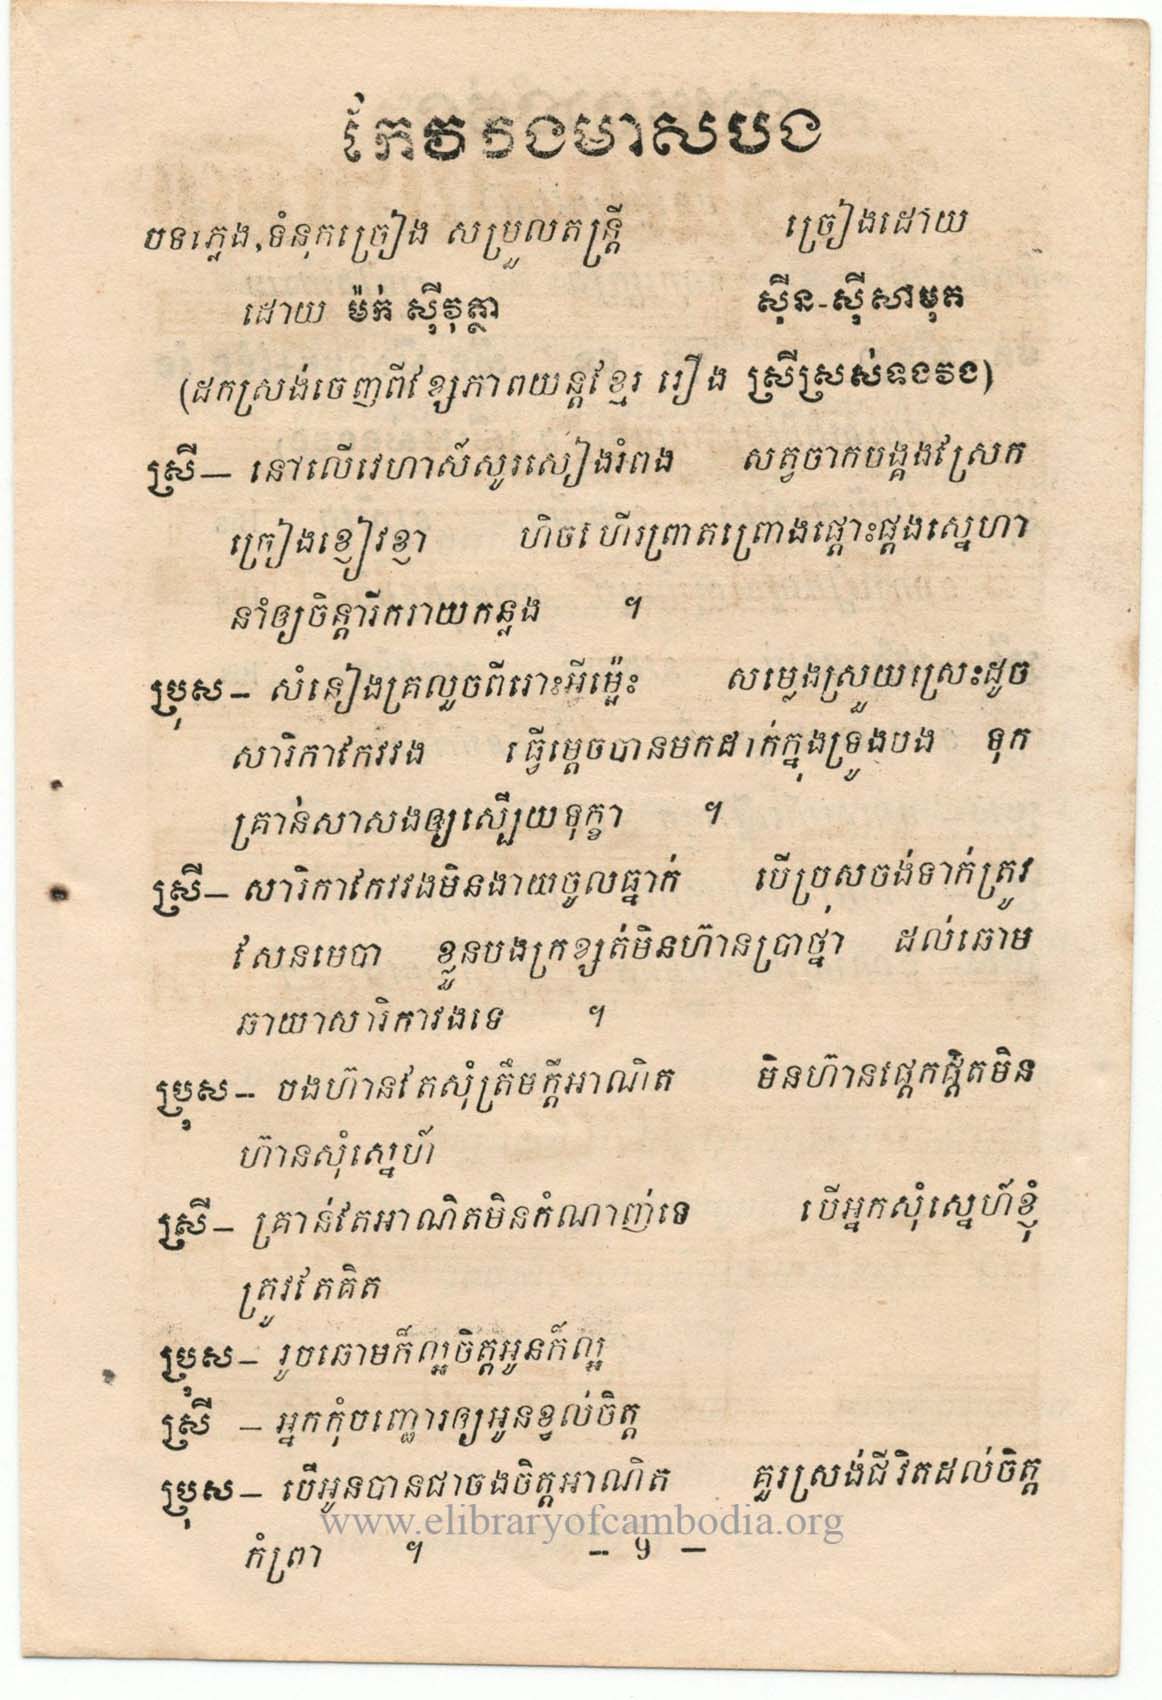 កែវវងមាសបង
បទភ្លេង,ទំនុកច្រៀង សម្រួលតន្ត្រី ច្រៀងដោយ
ដោយ ម៉ក់ ស៊ីវុត្ថា ស៊ីន-ស៊ីសាមុត
(ដកស្រង់ចេញពីខ្សែភាពយន្តខ្មែរ រឿង ស្រីស្រស់ទងវង)
ស្រី— នៅលើវេហាស៍សូរសៀងរំពង សត្វចាកបង្គងស្រែក
ច្រៀងខ្ញៀវខ្ញា ហិចហើរព្រាតព្រោងផ្តោះផ្តងស្នេហា
នាំឲ្យចិន្តារីករាយកន្លង ។
ប្រុស— សំនៀងគ្រលួចពីរោះអីម៉្លេះ សម្លេងស្រួយស្រេះដូច
សារិកាកែវវង ធ្វើម្តេចបានមកដាក់ក្នុងទ្រូងបង ទុក
គ្រាន់សាសងឲ្យស្បើយទុក្ខា ។
ស្រី— សារិកាកែវវងមិនងាយចូលធ្នាក់ បើប្រុសចង់ទាក់ត្រូវ
សែនមេបា ខ្លួនបងក្រខ្សត់មិនហ៊ានប្រាថ្នា ដល់ឆោម
ឆាយាសារិកាវងទេ ។
ប្រុស— បងហ៊ានតែសុំត្រឹមក្តីអាណិត មិនហ៊ានផ្តេកផ្តិតមិន
ហ៊ានសុំស្នេហ៍
ស្រី— គ្រាន់តែអាណិតមិនកំណាញ់ទេ បើអ្នកសុំស្នេហ៍ខ្ញុំ
ត្រូវតែគិត
ប្រុស— រូបឆោមក៏ល្អចិត្តអូនក៏ល្អ
ស្រី — អ្នកកុំបញ្ជោរឲ្យអូនខ្វល់ចិត្ត
ប្រុស— បើអូនបានជាចងចិត្តអាណិត គួរស្រង់ជីវិតដល់ចិត្ត
កំព្រា ។ — ៦ —
www.elibraryofcambodia.org